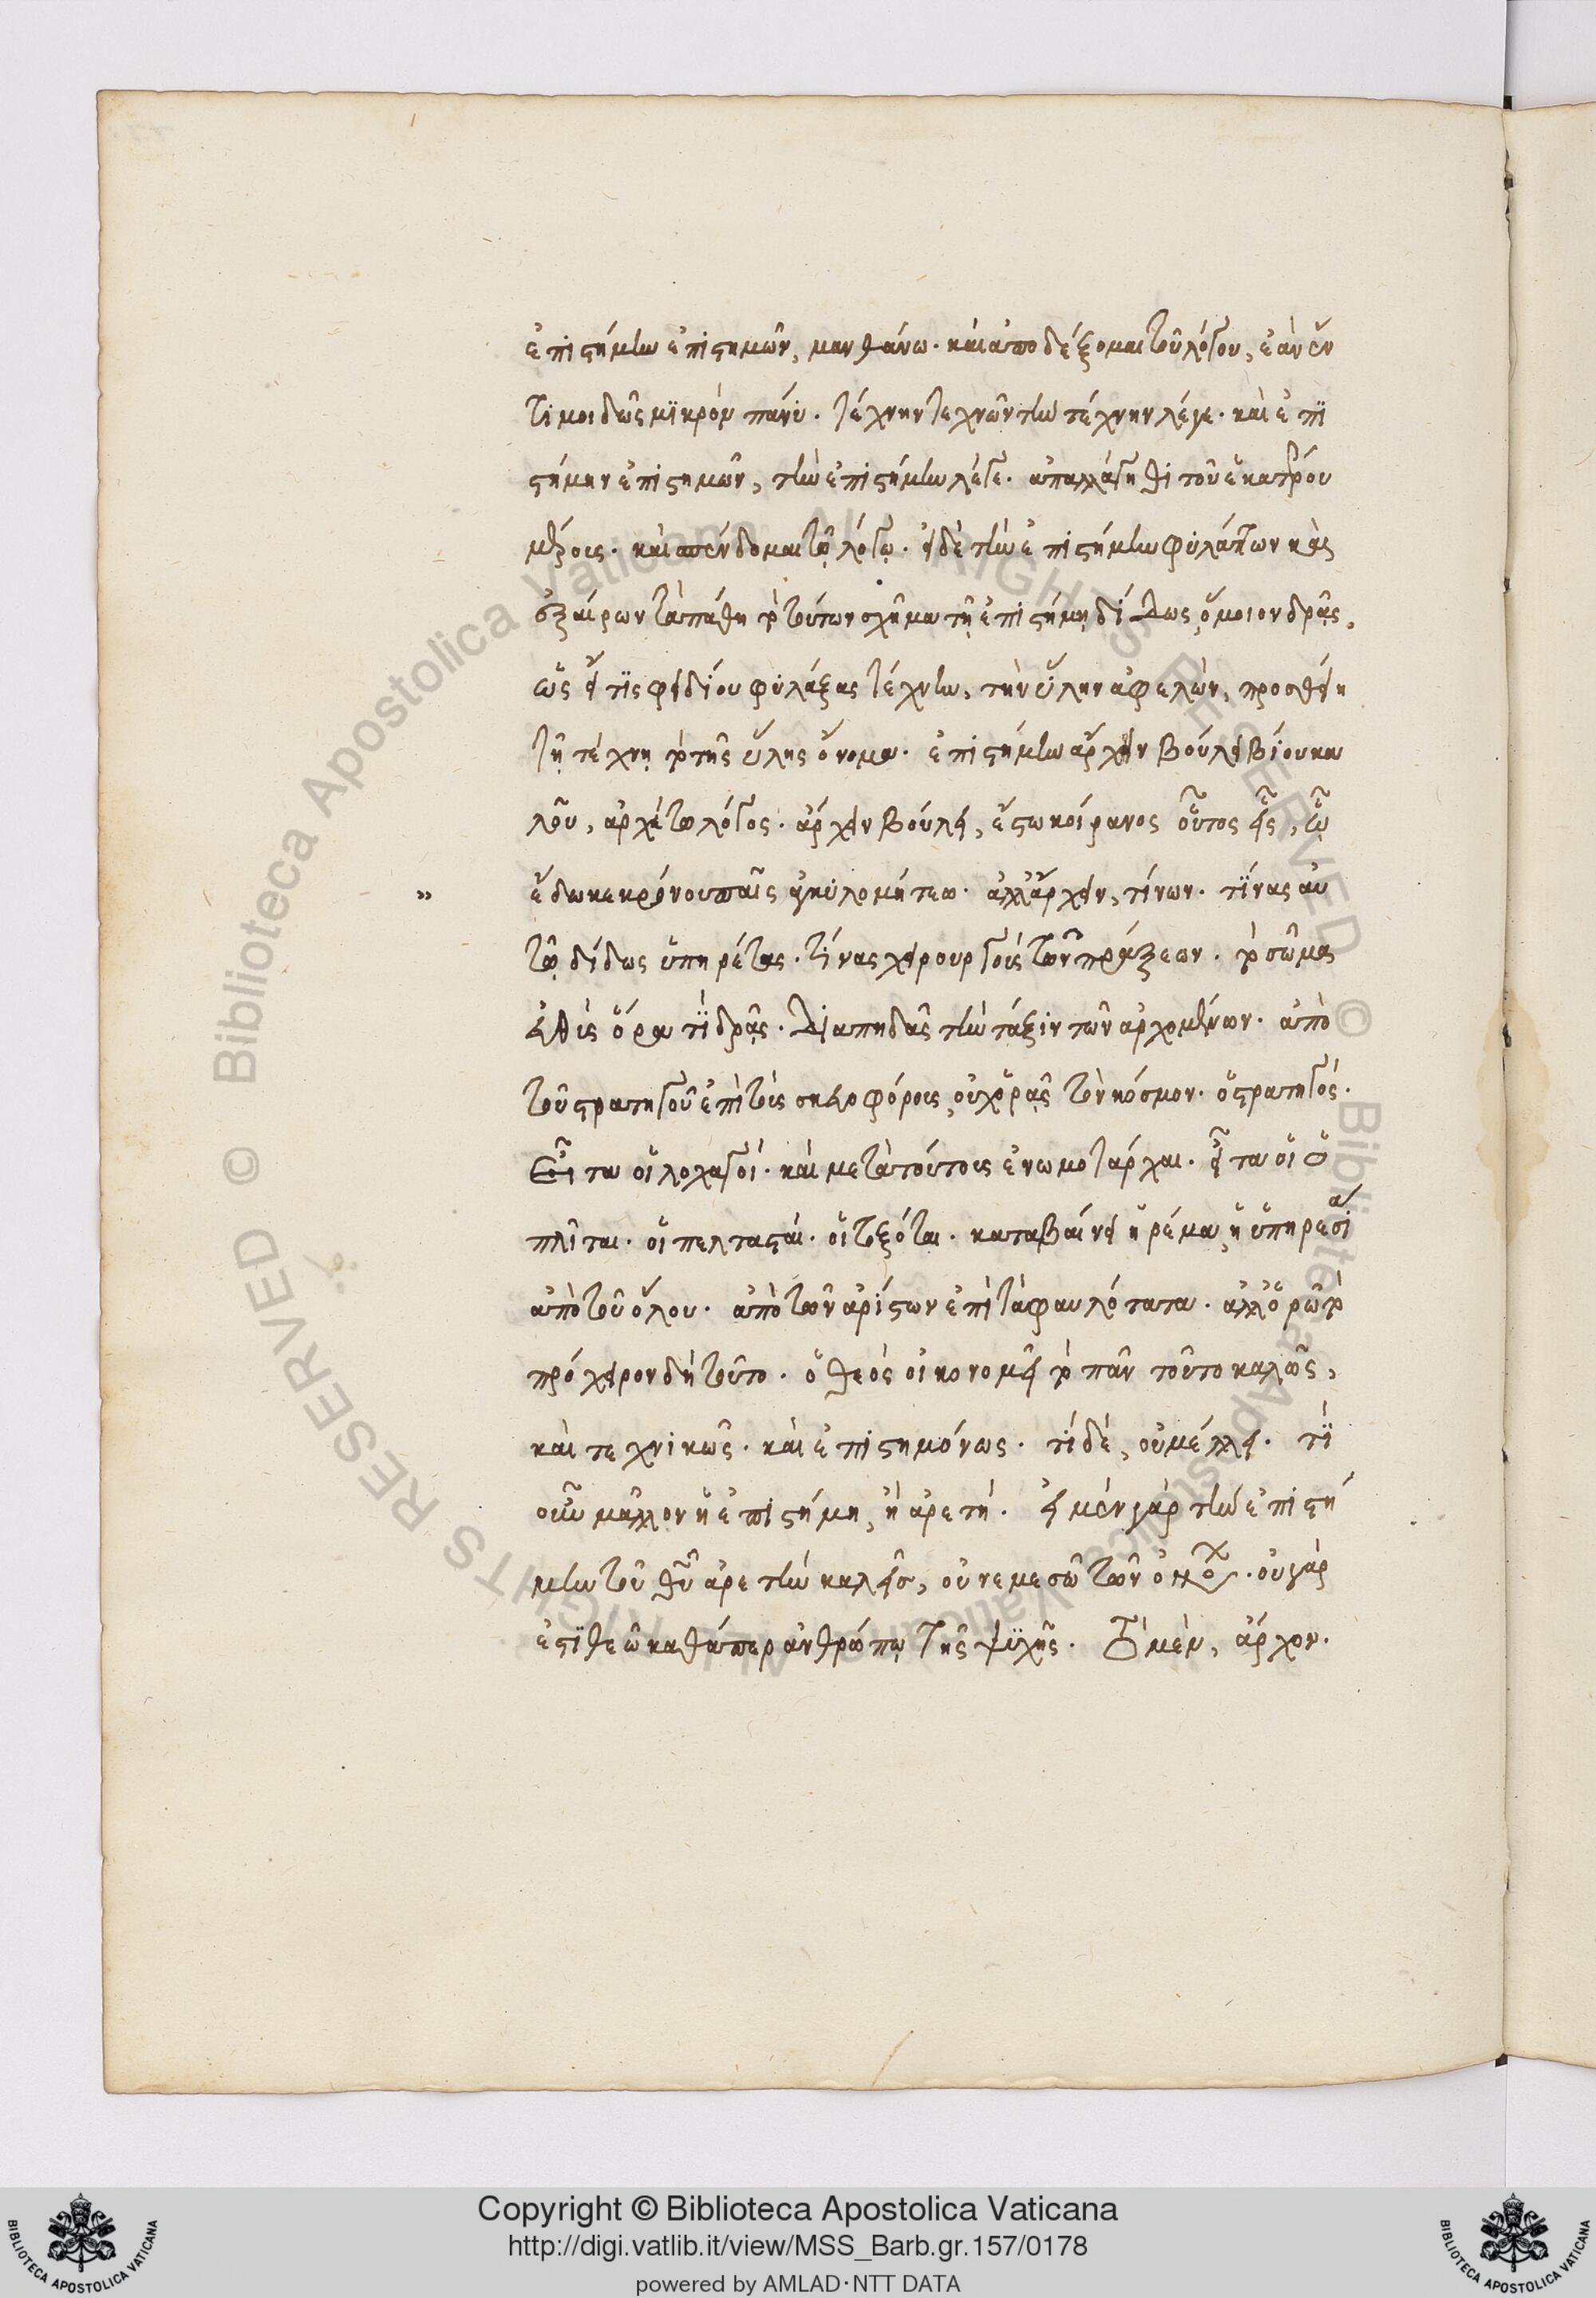 ἐπιστήμην ἐπιστημῶν, μανθάνω. καὶ ἀποδέξομαι τοῦ λόγου, ἐὰν ἕν
τί μοι δῷς μϊκρὸν πάνυ. τέχνην τεχνῶν τὴν τέχνην λέγε. καὶ ἐπϊ
στήμην ἐπιστημῶν, τὴν ἐπιστήμην λέγε. ἀπαλλάγηθι τοῦ ἑκατέρου
μέρους. καὶ σπένδομαι τῷ λόγῳ. εἰ δὲ τὴν ἐπιστήμην φυλάττων καὶ
ἐξαίρων τὰ πάθη τὸ τούτων σχῆμα τῇ ἐπιστήμῃ δίδως, ὅμοιον δρᾷς,
ὡς εἴ τϊς φειδίου φυλάξας τέχνην, τὴν ὕλην ἀφελὼν, προσθείη
τῇ τέχνῃ τὸ τῆς ὕλης ὄνομα. ἐπιστήμην ἄρχειν βούλει βίου κα
λοῦ, ἀρχέτω λόγος. ἄρχειν βούλει, ἔστω κοίρανος οὗτος εἷς, ᾧ
" ἔδωκε κρόνου παῖς ἀγκυλομήτεω. ἀλλ' ἄρχειν, τίνων. τϊνας αὐ
τῷ δίδως ὑπηρέτας. τίνας χειρουργοὺς τῶν πράξεων. τὸ σῶμα
εὐθὺς ὅρα τϊ δρᾷς. Διαπηδᾷς τὴν τάξιν τῶν ἀρχομένων. ἀπὸ
τοῦ στρατηγοῦ ἐπὶ τοὺς σκευοφόρους, οὐχ ὁρᾷς τὸν κόσμον. ὁ στρατηγός.
Εἶτα οἱ λοχαγοί. καὶ μετὰ τούτους ἐνωμοτάρχαι. εἶτα οἱ ὁ
πλῖται. οἱ πελτασταί. οἱ τοξόται. καταβαίνει ἠρέμα, ἡ ὑπηρεσία
ἀπὸ τοῦ ὅλου. ἀπὸ τῶν ἀρίστων ἐπὶ τὰ φαυλότατα. ἀλλ' ὁρῶ τὸ
πρόχειρον δὴ τοῦτο. ὁ θεὸς οἰκονομεῖ τὸ πᾶν τοῦτο καλῶς,
καὶ τεχνικῶς. καὶ ἐπιστημόνως. τί δέ, οὐ μέλλει. τϊ
οὖν μᾶλλον ἢ ἐπιστήμη, ἢ ἀρετή. εἰ μὲν γὰρ τὴν ἐπιστή
μην τοῦ θῦ ἀρετὴν καλεῖς, οὐ νεμεσῶ τῶν ὀνο. οὐ γάρ
ἐστϊ θεῶ καθάπερ ἀνθρώπῳ τῆς ψϋχῆς. Τὸ μὲν, ἄρχον.
Copyright © Biblioteca Apostolica Vaticana
http://digi.vatlib.it/view/MSS_Barb.gr.157/0178
powered by AMLAD·NTT DATA